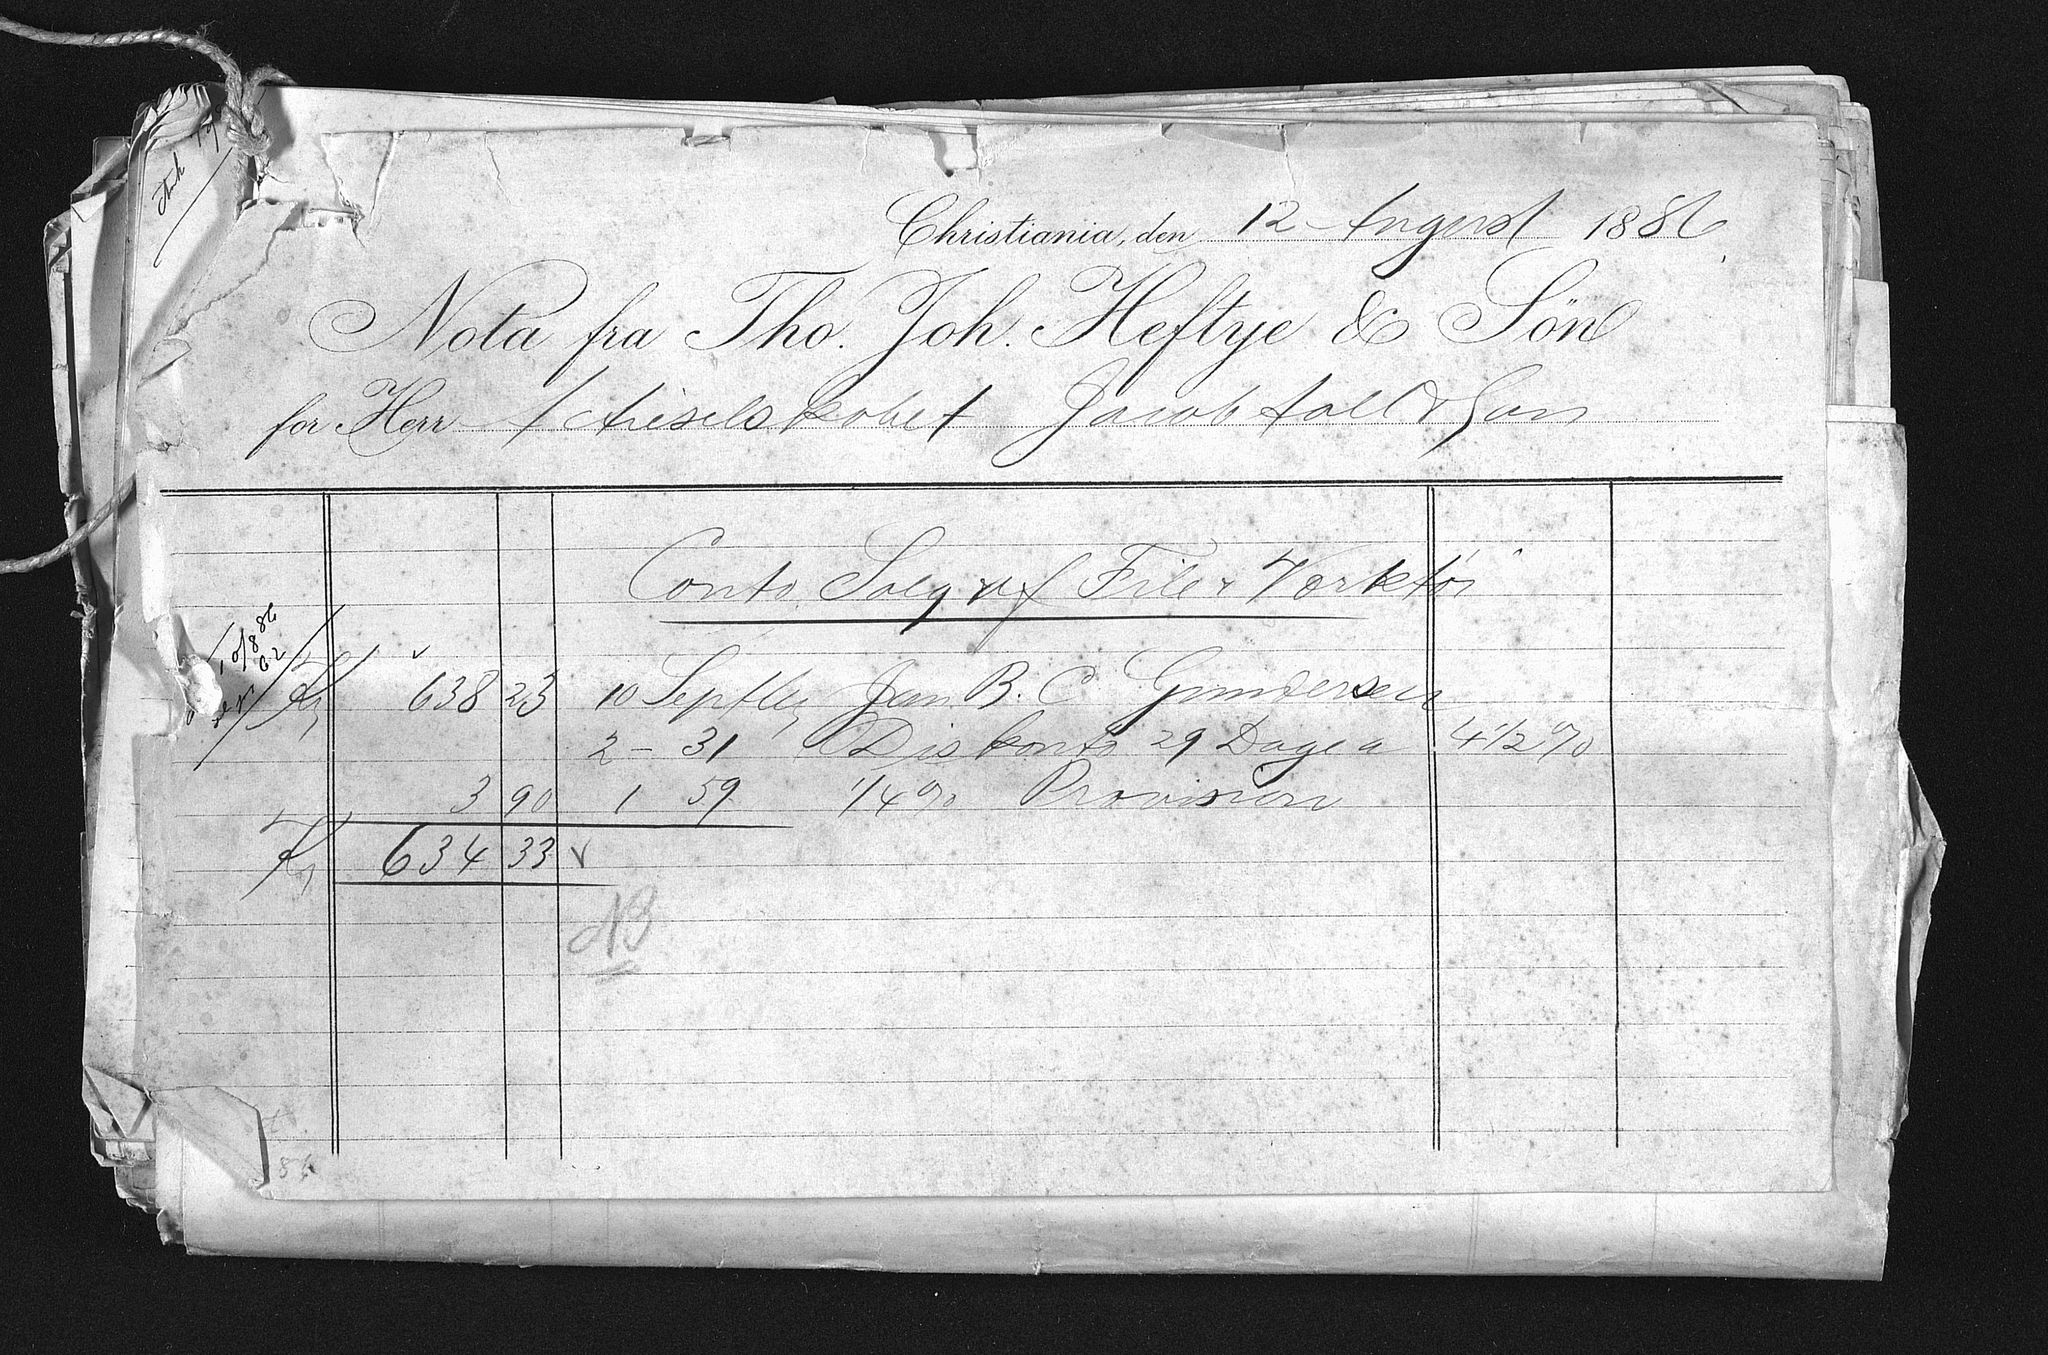 Christiania, den 12 August 1886
Nota fra Tho. Joh. Heftye & Søn
for Herr Actieselskabet Jacob Aall & Søn
Conto Salg af File & Værktöi
Kr 638 23 10 Septbr Jan B. C. Gundersen
2 - 31 Diskonto 29 Dage a 4 1/2 %
3 90 1 59 1/4 % Provision
Kr 634 33
NB
86